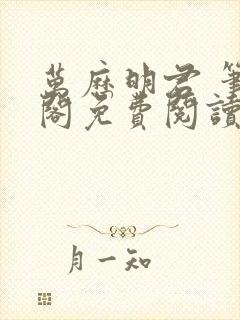 萬歷明君 筆
閣免費閱讀
月一知